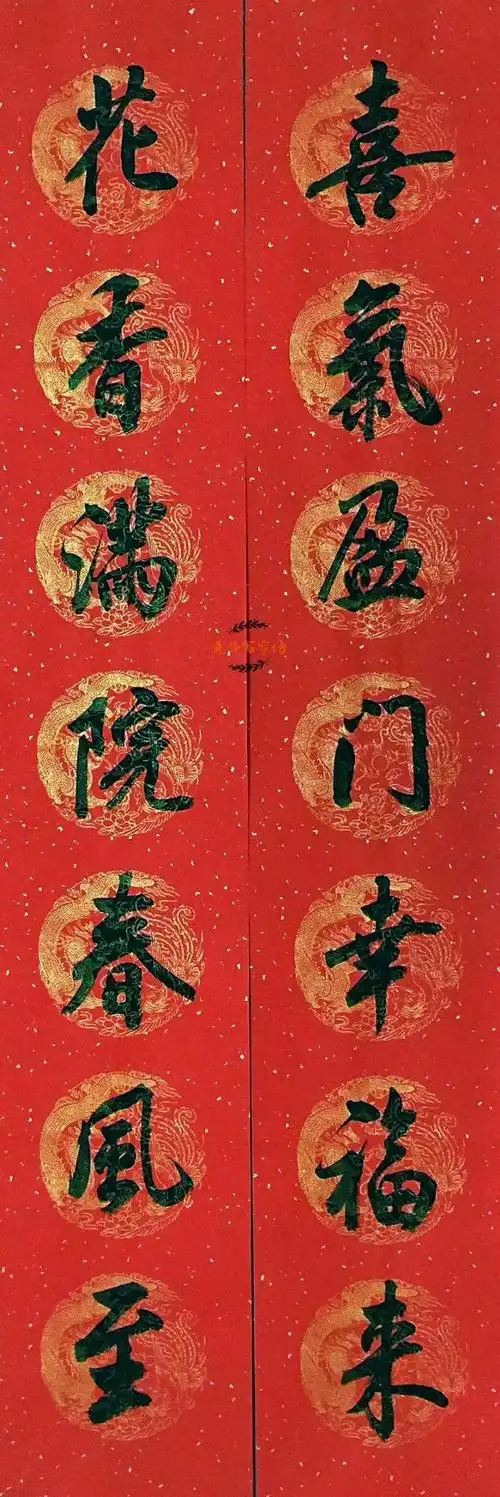 喜氣盈门幸福来
花香滿院春風至